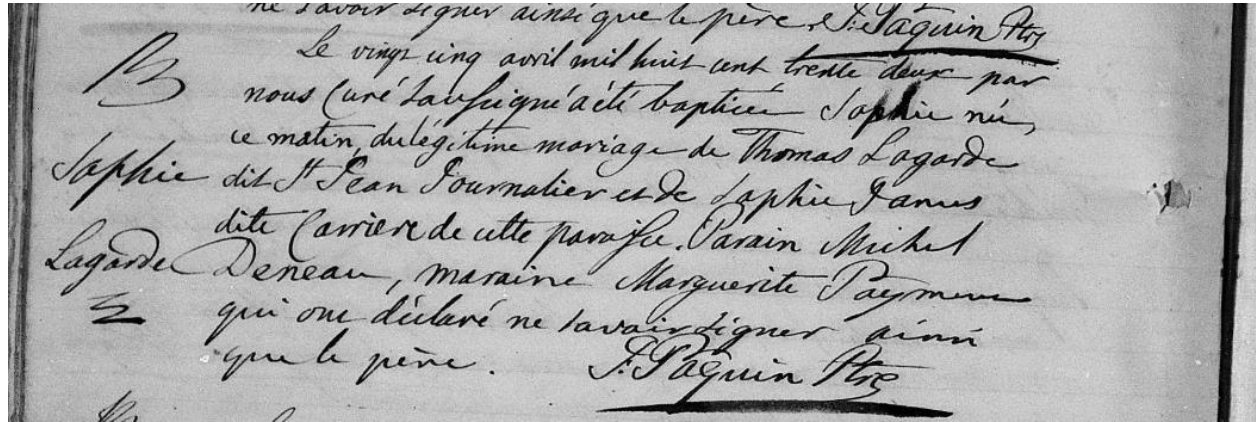 ne savoir signer ainsi que le père. J. Paquin Ptre
B
Le vingt cinq avril mil huit cent trente deux par
nous Curé Soussigné a été baptisée Sophie née
ce matin, du légitime mariage de Thomas Lagarde
Sophie
dit St Jean Journalier et de Sophie Janus
dite Carrière de cette paroisse. Parain Michel
Lagarde
Deneau, maraine Marguerite
qui ont déclaré ne savoir signer ainsi
que le père. J. Paquin Ptre